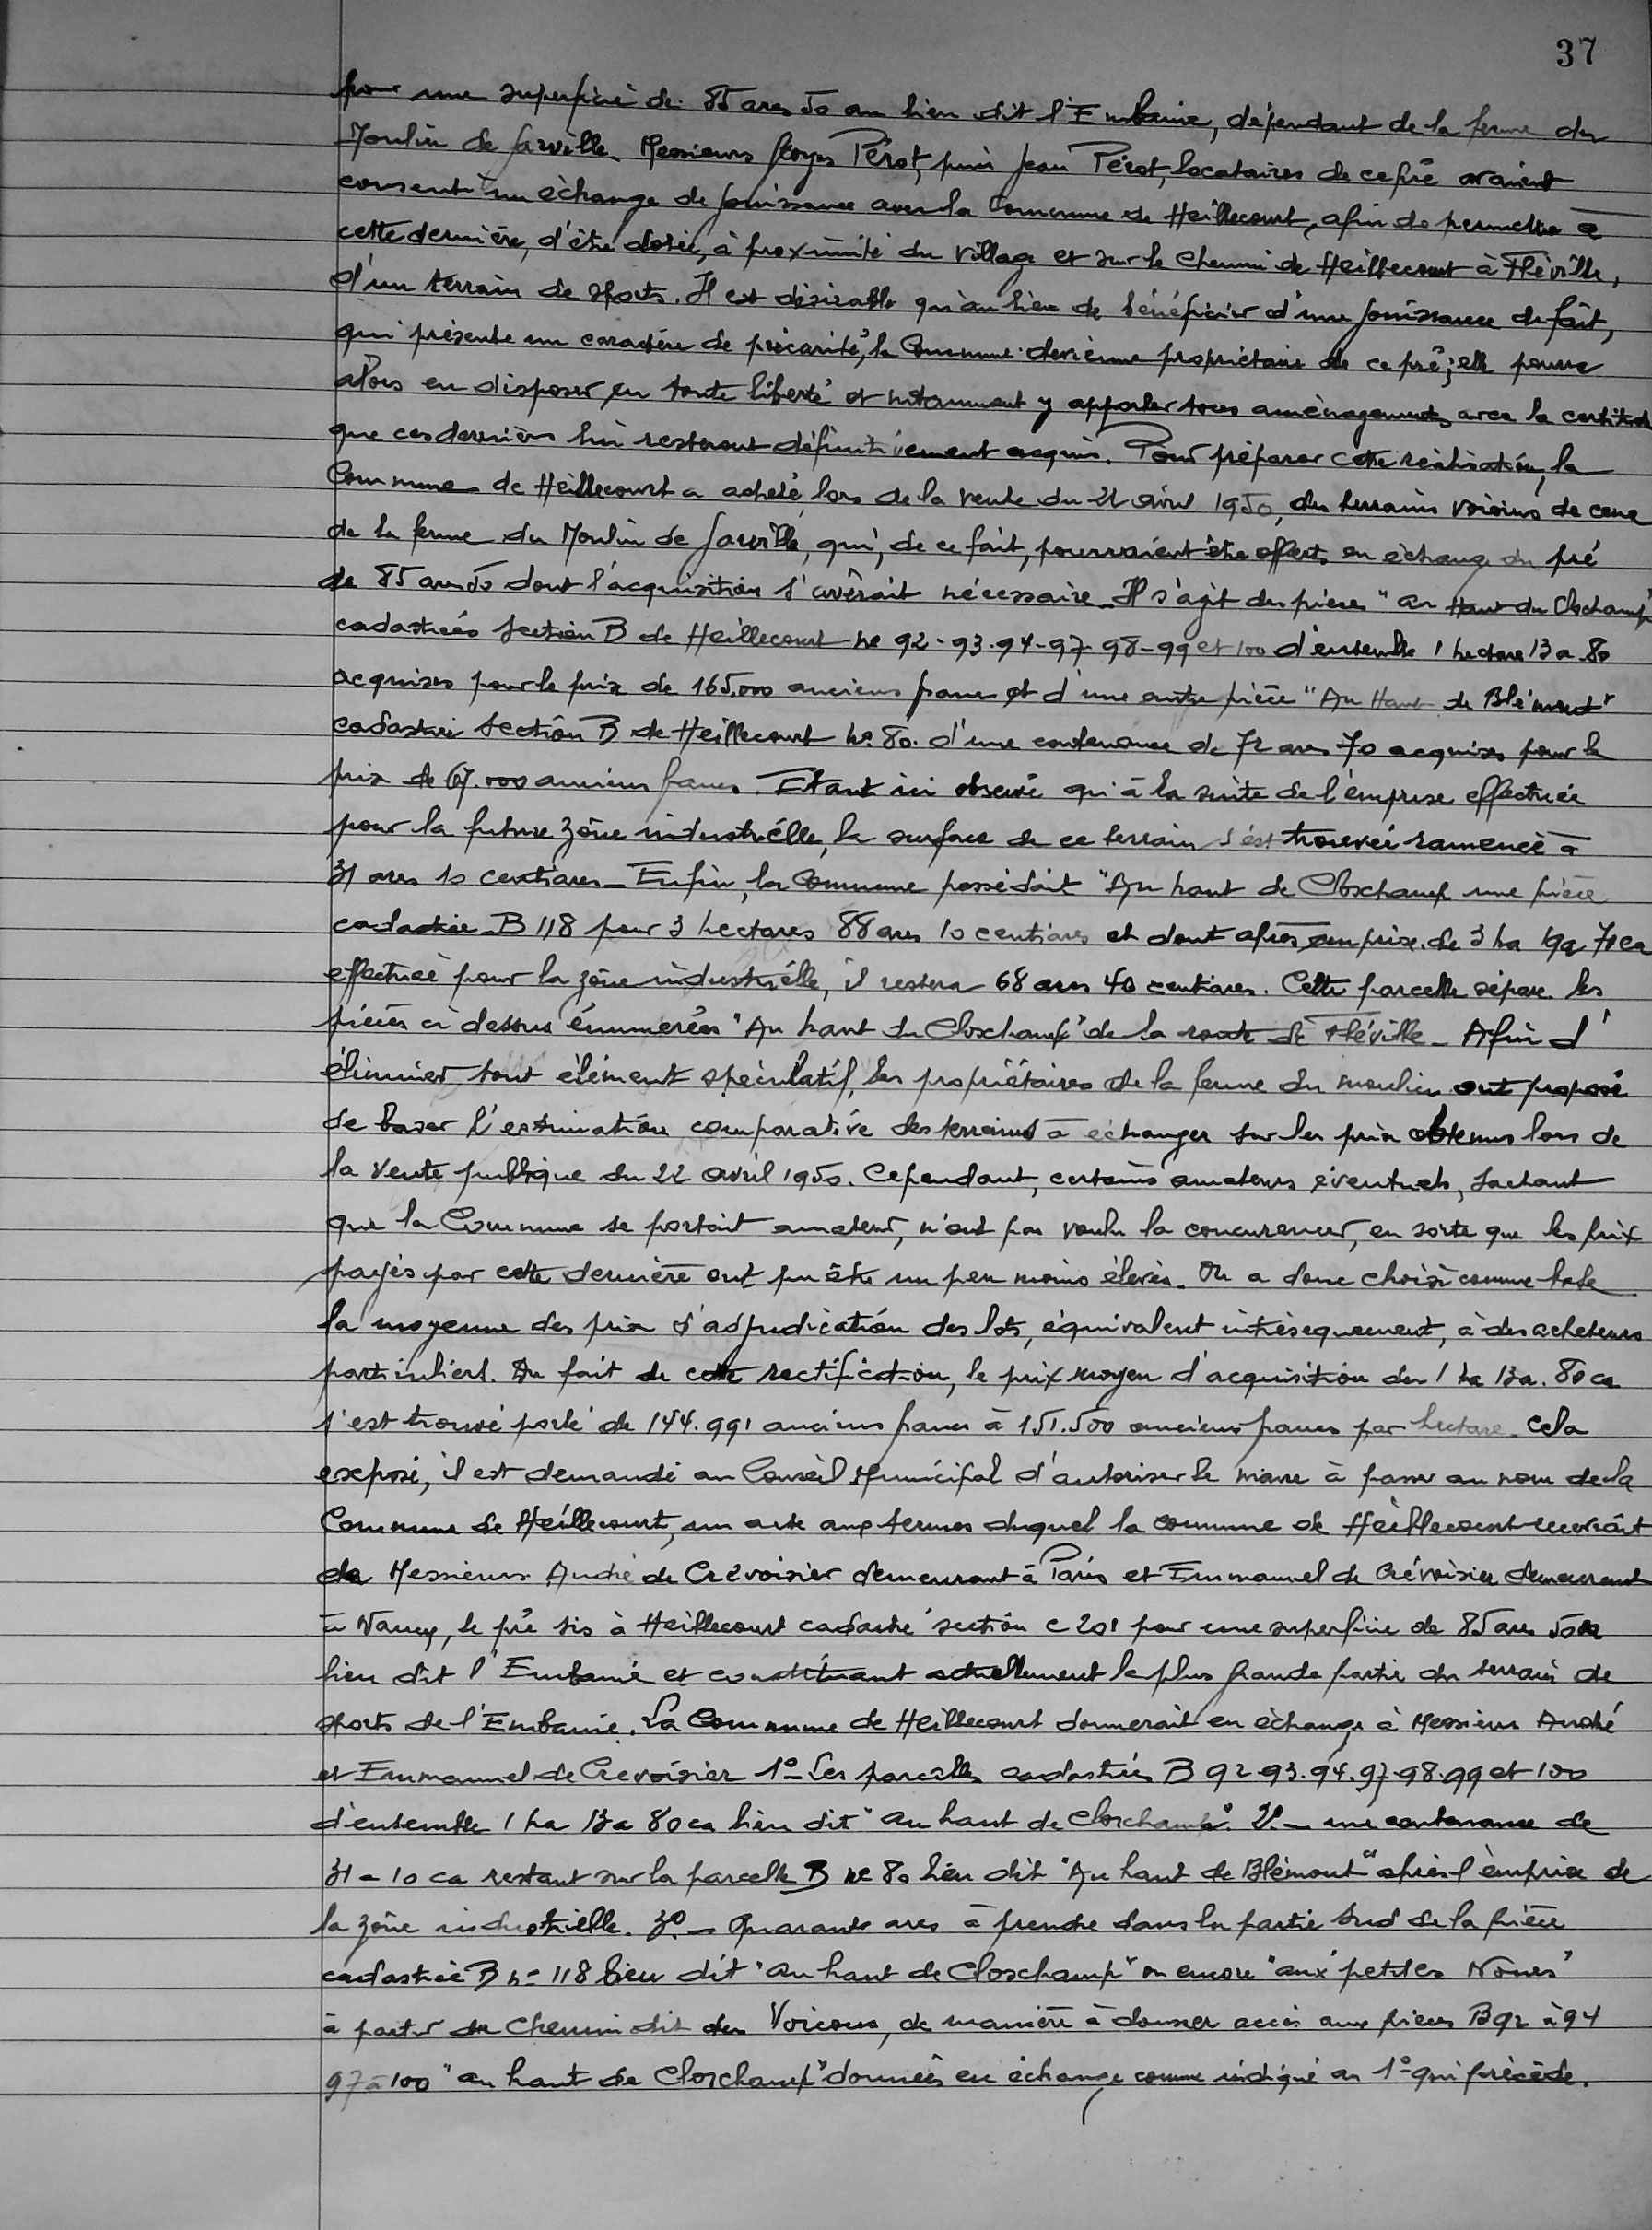 37
pour une superficie de 85 ares 50 au lieu dit l'Embanie, dépendant de la ferme du
Moulin de Jarville. Messieurs Georges Pérot, puis Jean Pérot, locataires de ce pré avaient
consenti un échange de jouissance avec la Commune de Heillecourt, afin de permettre à
cette dernière, d'être dotée, à proximité du village et sur le chemin de Heillecourt à Fléville,
d'un terrain de sports. Il est désirable qu'au lieu de bénéficier d'une jouissance de fait,
qui présente un caractère de précarité, la Commune devienne propriétaire de ce pré; elle pourra
alors en disposer en toute liberté et notamment y apporter tous aménagements avec la certitude
que ces derniers lui resteront définitivement acquis. Pour préparer cette réalisation, la
Commune de Heillecourt a acheté, lors de la vente du 22 Avril 1950, des terrains voisins de ceux
de la ferme du Moulin de Jarville, qui, de ce fait, pourraient être offerts en échange du pré
de 85 ares 50 dont l'acquisition s'avèrait nécessaire. Il s'agit des pièces "au Haut du Closchamp"
cadastrées Section B de Heillecourt no 92-93-94-97-98-99 et 100 d'ensemble 1 hectare 13 a 80
acquises pour le prix de 165.000 anciens francs et d'une autre pièce "Au Haut de Blémont"
cadastrée Section B de Heillecourt no 80. d'une contenance de 72 ares 70 acquises pour le
prix de 67.000 anciens francs. Etant ici observé qu'à la suite de l'emprise effectuée
pour la future zône industrielle, la surface de ce terrain s'est trouvée ramenée à
31 ares 10 centiares - Enfin, la Commune possédait "Au haut de Closchamp une pièce
cadastrée B 118 pour 3 hectares 88 ares 10 centiares et dont après emprise de 3 ha 19a 70 ca
effectuée pour la zône industrielle, il restera 68 ares 40 centiares. Cette parcelle sépare les
pièces ci dessus énumerées "Au haut du Closchamp" de la route de Fléville - Afin d'
éliminer tout élément spéculatif, les propriétaires de la ferme du moulin ont proposé
de baser l'estimation comparative des terrains à échanger sur les prix obtenus lors de
la vente publique du 22 avril 1950. Cependant, certains amateurs éventuels, sachant
que la Commune se portait amateur, n'ont pas voulu la concurencer, en sorte que les prix
payés par cette dernière ont pu être un peu moins élevés. On a donc choisi comme base
la moyenne des prix d'adjudication des lots, équivalent intrèsequement, à des acheteurs
particuliers. Du fait de cette rectification, le prix moyen d'acquisition des 1 ha 13 a. 80 ca
s'est trouvé porté de 144.991 anciens francs à 151.500 anciens francs par hectare. Cela
exposé, il est demandé au Conseil Municipal d'autoriser le maire à passer au nom de la
Commune de Heillecourt, un acte aux termes duquel la commune de Heillecourt recevrait
de Messieurs André de Crévoisier demeurant à Paris et Emmanuel de Crévoisier demeurant
à Nancy, le pré sis à Heillecourt cadastré section C 201 pour une superficie de 85 ares 50 ca
lieu dit l'Embanie et constituant actuellement la plus grande partie du terrain de
sports de l'Embanie. La Commune de Heillecourt donnerait en échange à Messieurs André
et Emmanuel de Crevoisier 1°- Les parcelles cadastrées B 92-93.94.97-98.99 et 100
d'ensemble 1 ha 13 a 80 ca lieu dit "au haut de Closchamp". 2°- une contenance de
31 a 10 ca restant sur la parcelle B no 80 lieu dit "Au haut de Blémont" après l'emprise de
la zône industrielle. 3°.- Quarante ares à prendre dans la partie Sud de la pièce
cadastrée B no 118 lieu dit "au haut de Closchamp" ou encore "aux petites Noues"
à partir du chemin dit des Voicous, de manière à donner accès aux pièces B 92 à 94
97 à 100 "au haut de Closchamp" données en échange comme indiqué au 1° qui précède.